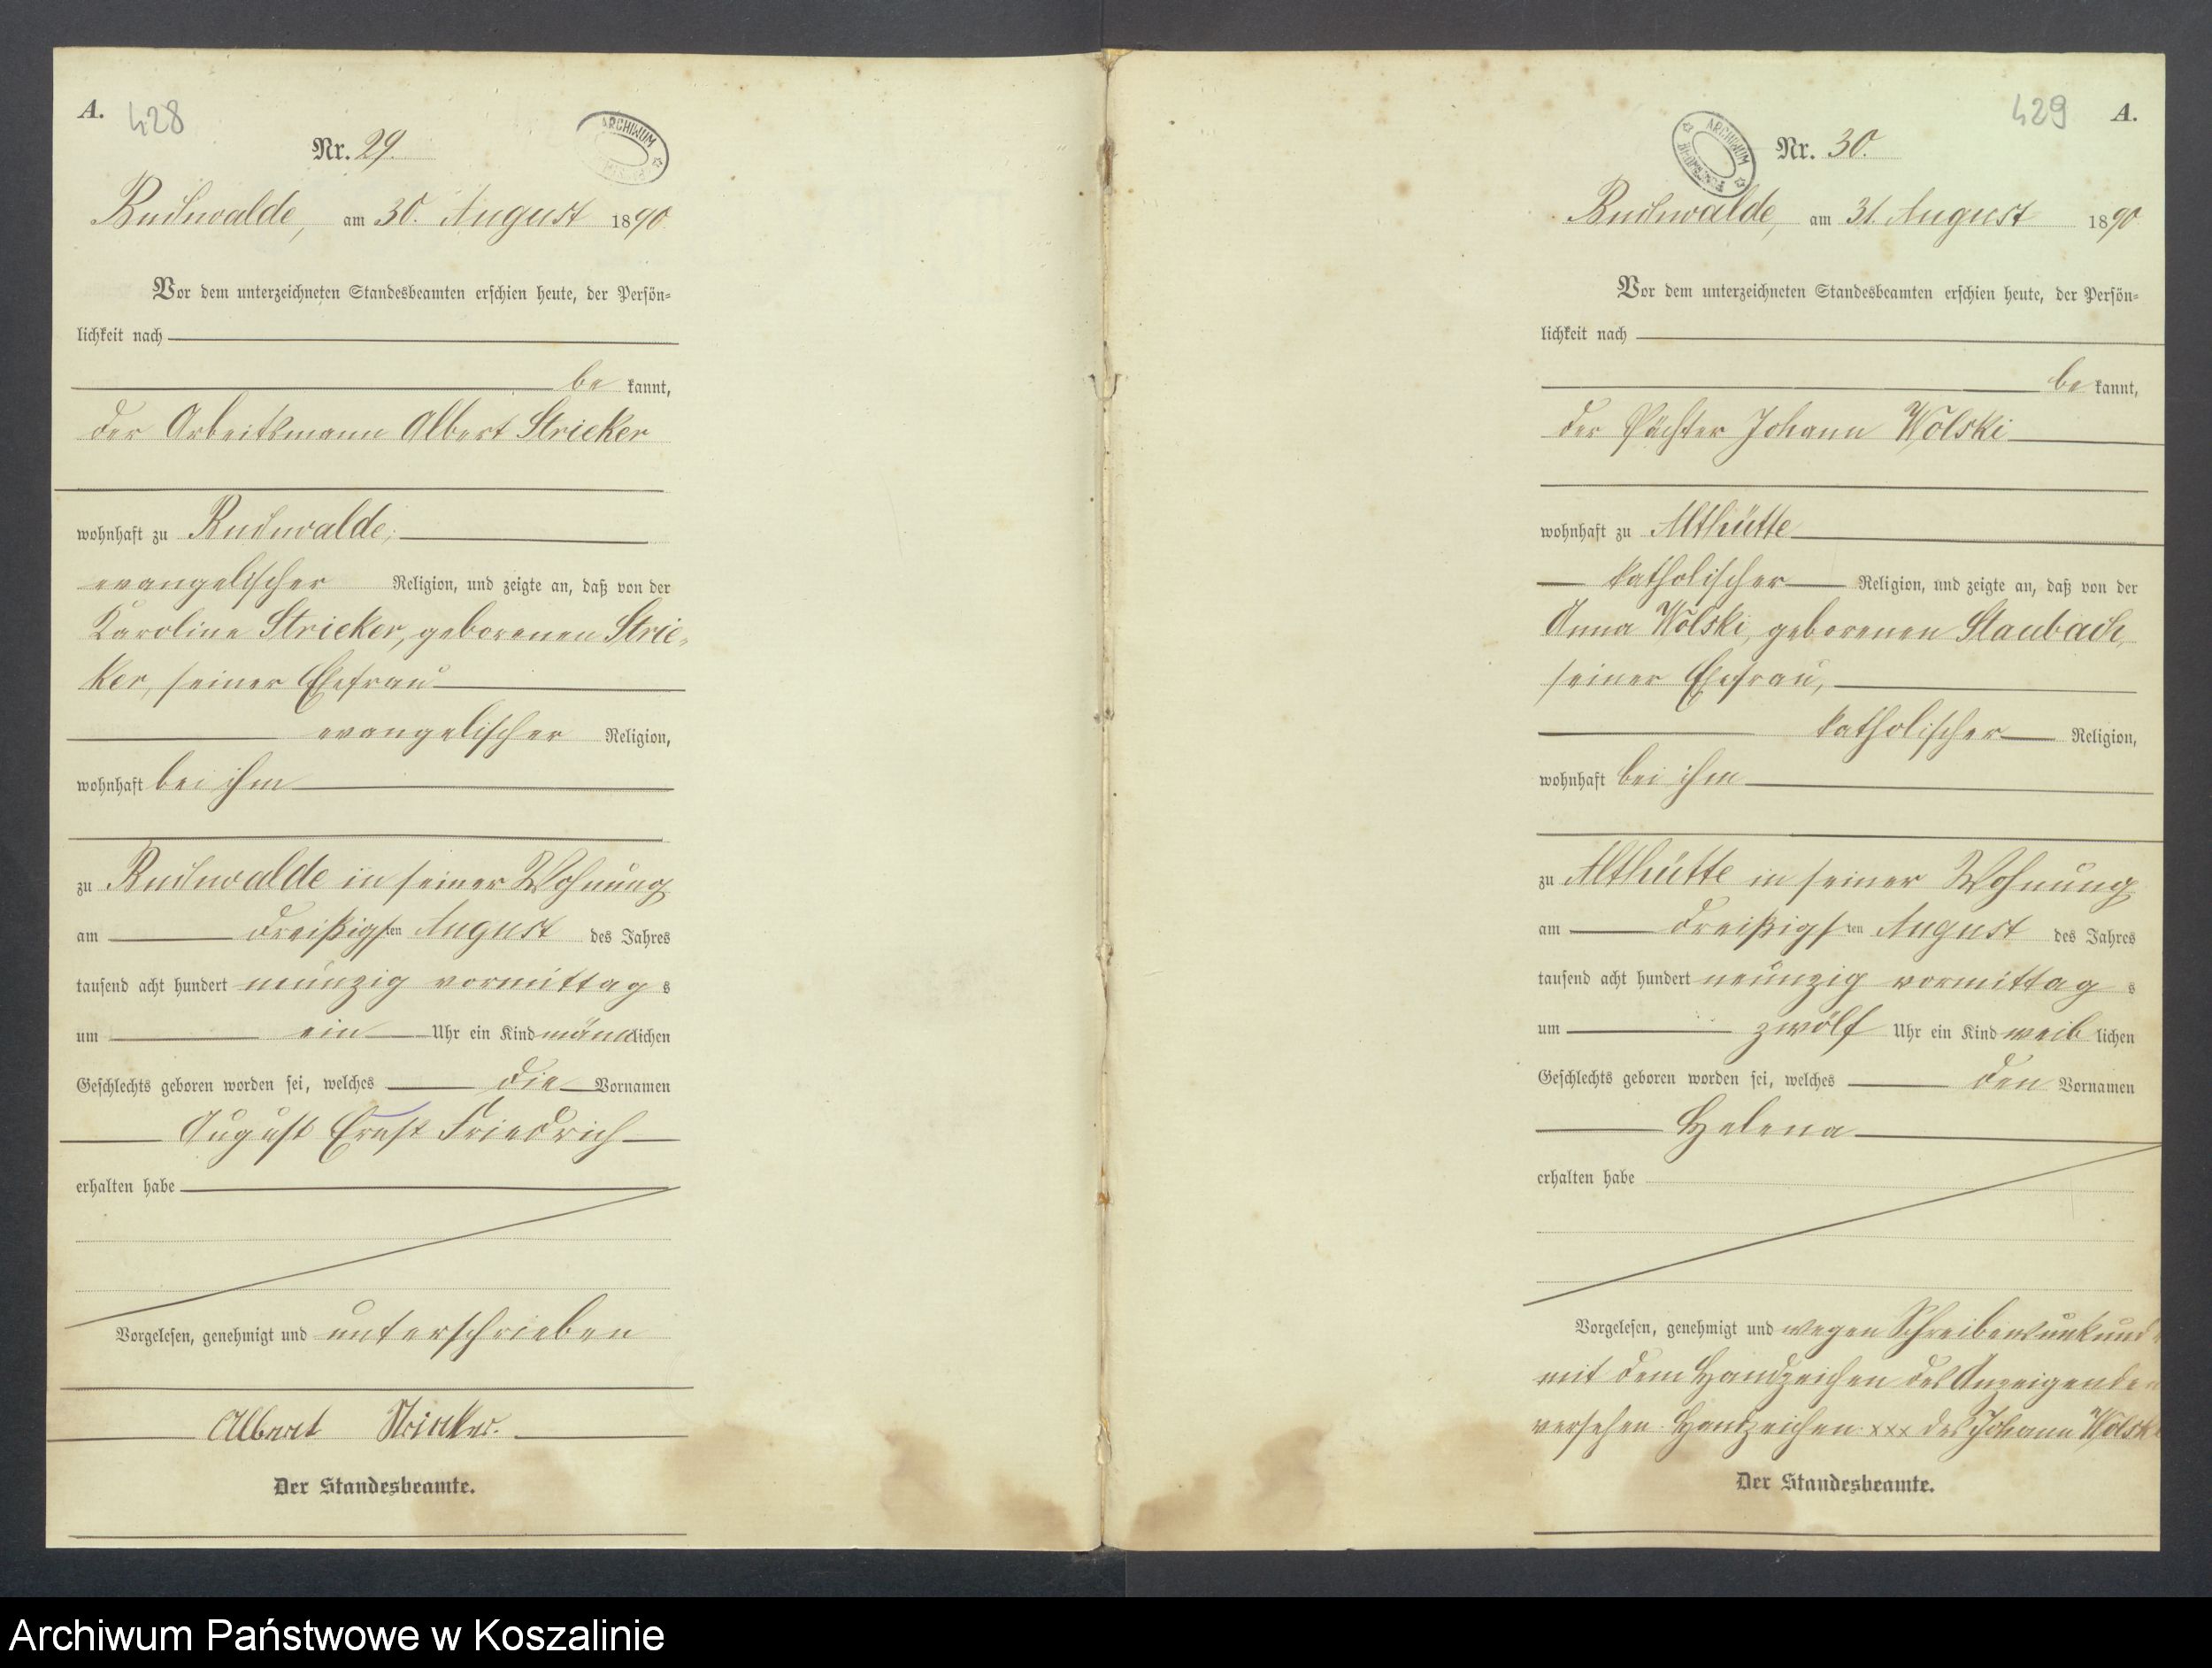 A.
428
ARCHIWUM
Nr. 29.
Buchwalde, am 30. August 1890
Vor dem unterzeichneten Standesbeamten erschien heute, der Persön-
lichkeit nach
be kannt,
der Arbeitsmann Albert Stricker
wohnhaft zu Buchwalde,
evangelischer Religion, und zeigte an, daß von der
Karoline Stricker, geborenen Stric-
ker, seiner Ehefrau
evangelischer Religion,
wohnhaft bei ihm
zu Buchwalde in seiner Wohnung
am dreißigsten August des Jahres
tausend acht hundert neunzig vormittag s
um ein Uhr ein Kind männlichen
Geschlechts geboren worden sei, welches die Vornamen
August Ernst Friedrich
erhalten habe
Vorgelesen, genehmigt und unterschrieben
Albert Stricker.
Der Standesbeamte.
429
A.
ARCHIWUM
Nr. 30.
Buchwalde, am 31. August 1890
Vor dem unterzeichneten Standesbeamten erschien heute, der Persön-
lichkeit nach
be kannt,
der Pächter Johann Wolski
wohnhaft zu Althütte
katholischer Religion, und zeigte an, daß von der
Anna Wolski, geborenen Staubach,
seiner Ehefrau,
katholischer Religion,
wohnhaft bei ihm
zu Althütte in seiner Wohnung
am dreißigsten August des Jahres
tausend acht hundert neunzig vormittag s
um zwölf Uhr ein Kind weib lichen
Geschlechts geboren worden sei, welches den Vornamen
Helena
erhalten habe
Vorgelesen, genehmigt und wegen Schreibensunkunde
mit dem Handzeichen des Anzeigenden
versehen. Handzeichen xxx des Johann Wolski
Der Standesbeamte.
Archiwum Państwowe w Koszalinie